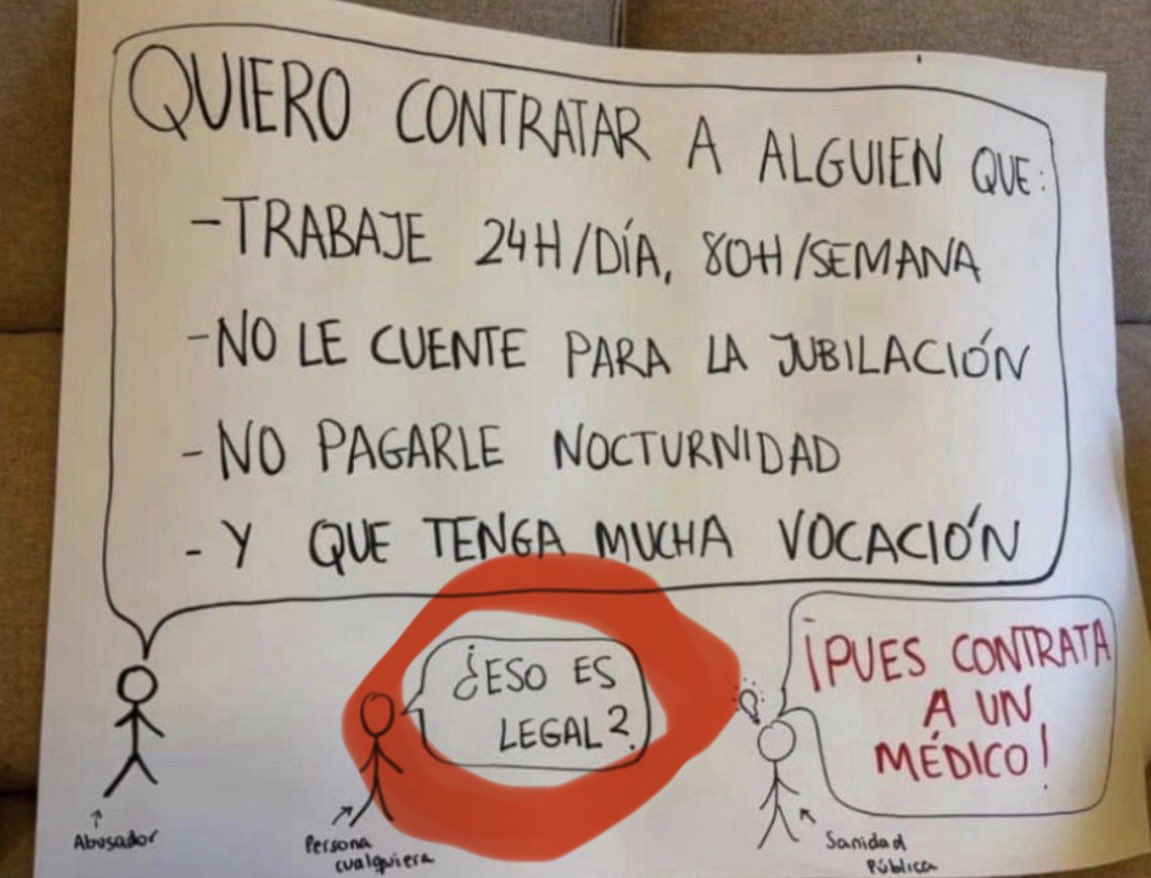 QUIERO CONTRATAR A ALGUIEN QUE:
-TRABAJE 24H/DÍA, 80H/SEMANA
-NO LE CUENTE PARA LA JUBILACIÓN
-NO PAGARLE NOCTURNIDAD
-Y QUE TENGA MUCHA VOCACIÓN
¿ESO ES
LEGAL?
¡PUES CONTRATA
A UN
MÉDICO!
Abusador
Persona
cualquiera
Sanidad
Pública